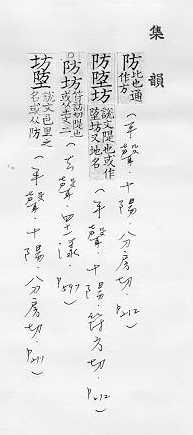 集韻
防 比也通作方 (平聲.十陽.分房切.P212)
防埅坊 說文隄也或作埅坊又地名 (平聲.十陽.符方切.P212)
○防坊 符訪切隄也或从土文二 (去聲.四十一漾.P597)
坊埅 說文邑里之名或从防 (平聲.十陽.分房切.P211)